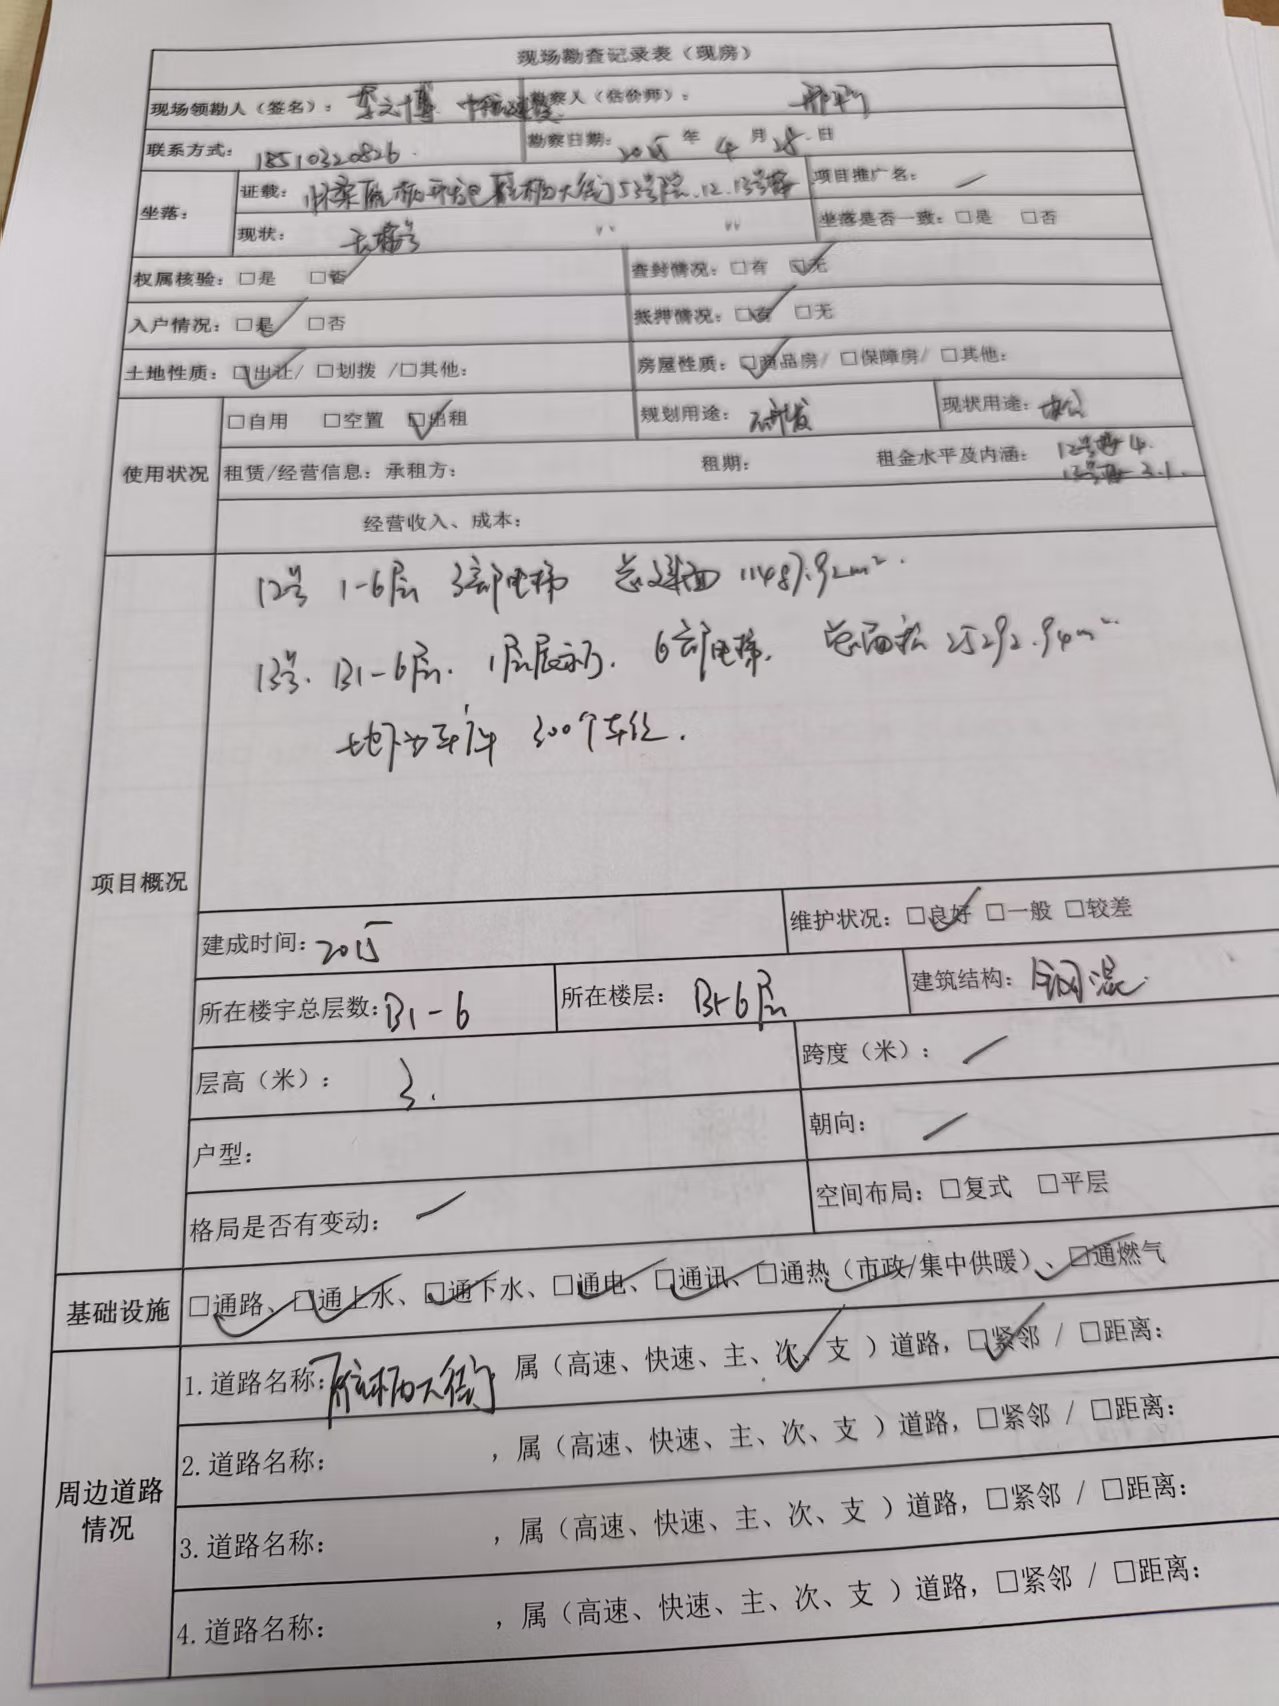 现场勘查记录表（现房）
现场领勘人（签名）： 勘察人（估价师）：
联系方式：18510320826. 勘察日期：2025年4月28日
坐落： 证载： 大街53号院.12.13号楼 项目推广名：/
现状： " " 坐落是否一致：□是 □否
权属核验：□是 □否 查封情况：□有 □无
入户情况：□是 □否 抵押情况：□有 □无
土地性质：□出让/ □划拨 /□其他： 房屋性质：□商品房/ □保障房/ □其他：
使用状况 □自用 □空置 □出租 规划用途：研发 现状用途：办公
租赁/经营信息：承租方： 租期： 租金水平及内涵：12号楼 4.
13号楼 3.1.
经营收入、成本：
项目概况
12号 1-6层 3部电梯 总建面 11487.92m².
13号. B1-6层. 1层展示厅. 6部电梯. 总面积 25292.94m²
地下为车库 300个车位.
建成时间：2015 维护状况：□良好 □一般 □较差
所在楼宇总层数：B1-6 所在楼层：B1-6层 建筑结构：钢混.
层高（米）：3. 跨度（米）：/
户型： 朝向：/
格局是否有变动：/ 空间布局：□复式 □平层
基础设施 □通路、□通上水、□通下水、□通电、□通讯、□通热（市政/集中供暖）、□通燃气
周边道路情况
1.道路名称：雁栖大街，属（高速、快速、主、次、支 ）道路，□紧邻 / □距离：
2.道路名称： ，属（高速、快速、主、次、支 ）道路，□紧邻 / □距离：
3.道路名称： ，属（高速、快速、主、次、支 ）道路，□紧邻 / □距离：
4.道路名称： ，属（高速、快速、主、次、支 ）道路，□紧邻 / □距离：